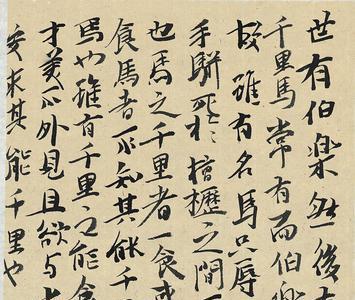 世有伯樂然後有
千里馬常有而伯樂
故雖有名馬只辱
手駢死於槽櫪之間
也馬之千里者一食或
食馬者不知其能千
馬也雖有千里之能食
才美不外見且欲与
安求其能千里也